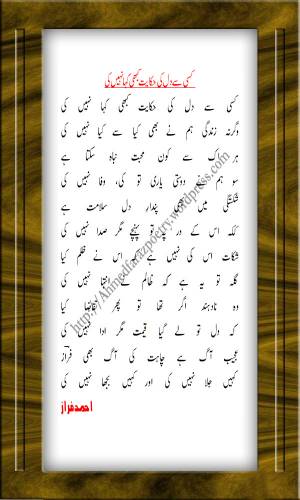 کسی سے دل کی حکایت کبھی کہا نہیں کی
کسی سے دل کی حکایت کبھی کہا نہیں کی
وگرنہ زندگی ہم نے بھی کیا سے کیا نہیں کی
ہر اک سے کون محبت نباہ سکتا ہے
سو ہم نے دوستی یاری تو کی، وفا نہیں کی
شکستگی میں بھی پندار دل سلامت ہے
کہ اس کے در پہ تو پہنچے مگر صدا نہیں کی
شکایت اس کی نہیں ہے کہ اس نے ظلم کیا
گلہ تو یہ ہے کہ ظالم نے انتہا نہیں کی
وہ نادہند اگر تھا تو پھر تقاضا کیا
کہ دل تو لے گیا قیمت مگر ادا نہیں کی
عجیب آگ ہے چاہت کی آگ بھی فراز
کہیں جلا نہیں کی اور کہیں بجھا نہیں کی
احمد فراز
http://Ahmedfarazpoetry.wordpress.com